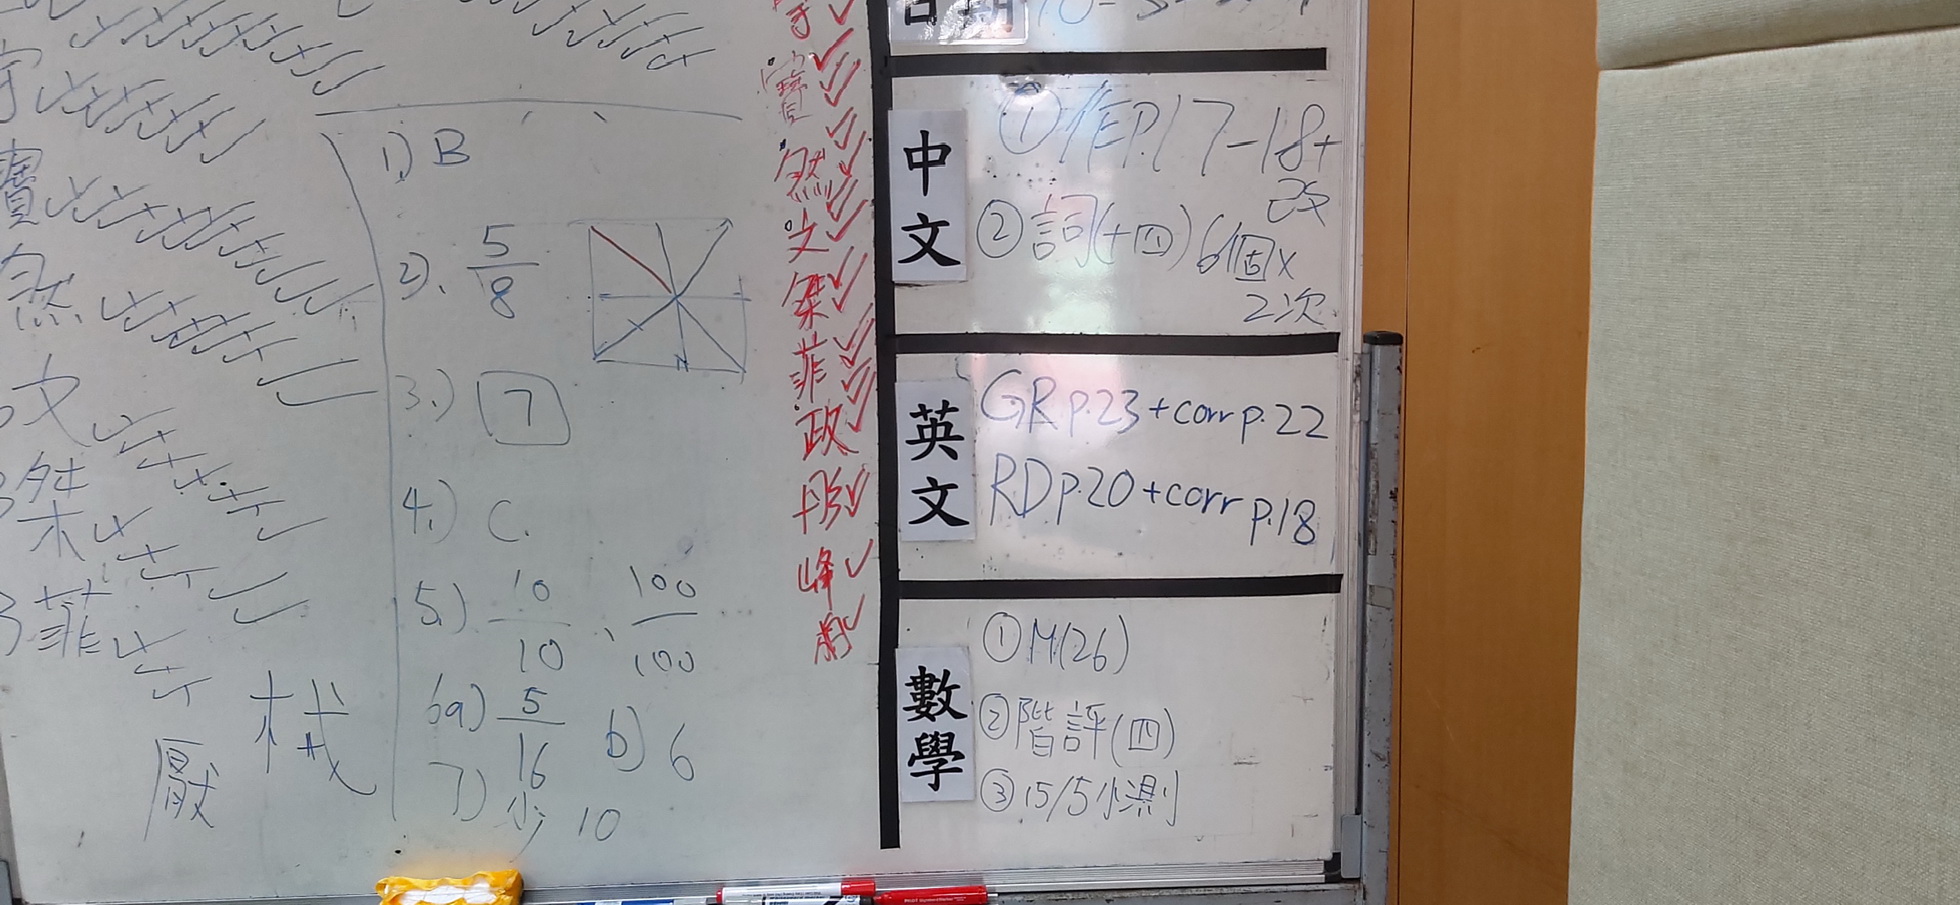 寶
然
文
傑
菲
1) B
2). 5/8
3.) 7
4.) C.
5.) 10/10 、 100/100
6a) 5/16 b) 6
7) 小; 10
械
厭
寶
然
文
傑
菲
政
彤
峰
日期
中文
①作P.17-18+改
②詞(十四)6個x2次
英文
GR p.23+corr p.22
RD p.20+corr p.18
數學
①M(26)
②階評(四)
③15/5小測